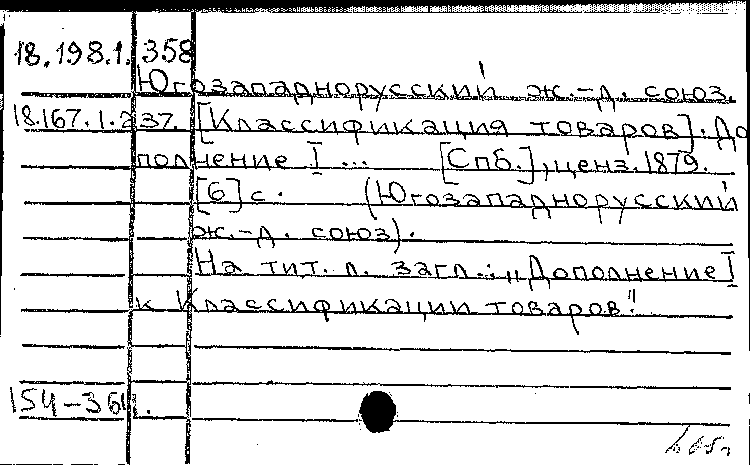 18.198.1.358
Югозападнорусский ж.-д. союз.
18.167.1.237. [Классификация товаров]. До
полнение I ... [Спб.], ценз. 1879.
[6] с. (Югозападнорусский
ж.-д. союз).
На тит. л. загл.: „Дополнение I
к Классификации товаров".
154-364.